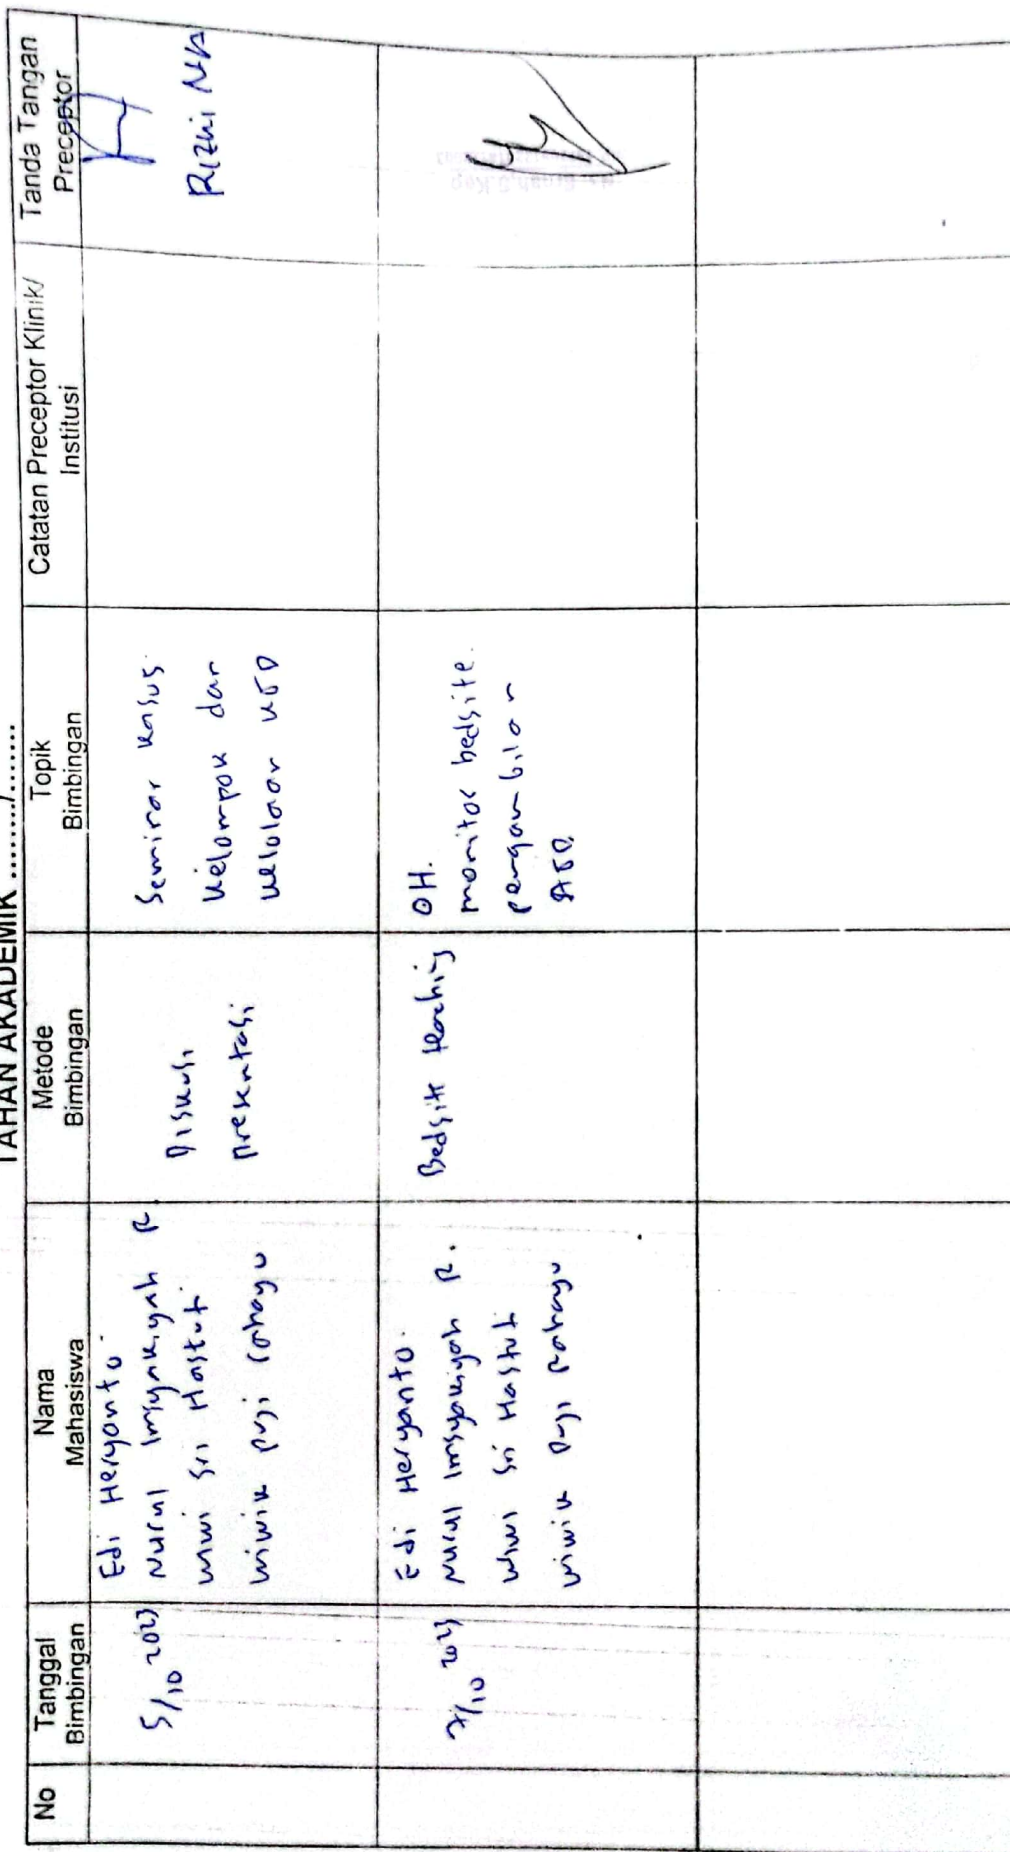 TAHAN AKADEMIK ......../.......
No
Tanggal
Bimbingan
Nama
Mahasiswa
Metode
Bimbingan
Topik
Bimbingan
Catatan Preceptor Klinik/
Institusi
Tanda Tangan
Preceptor
5/10 2023
Edi Heryanto
Nurul Imsyakiyah R
Wiwi Sri Hastuti
Wiwik Puji Rahayu
Diskusi
Presentasi
Seminar kasus
Kelompok dan
kelolaan
Rizki
7/10 2023
Edi Heryanto.
Nurul Imsyakiyah R.
Wiwi Sri Hastuti
Wiwik Puji Rahayu
Bedsite teaching
OH.
monitor bedsite.
pengambilan